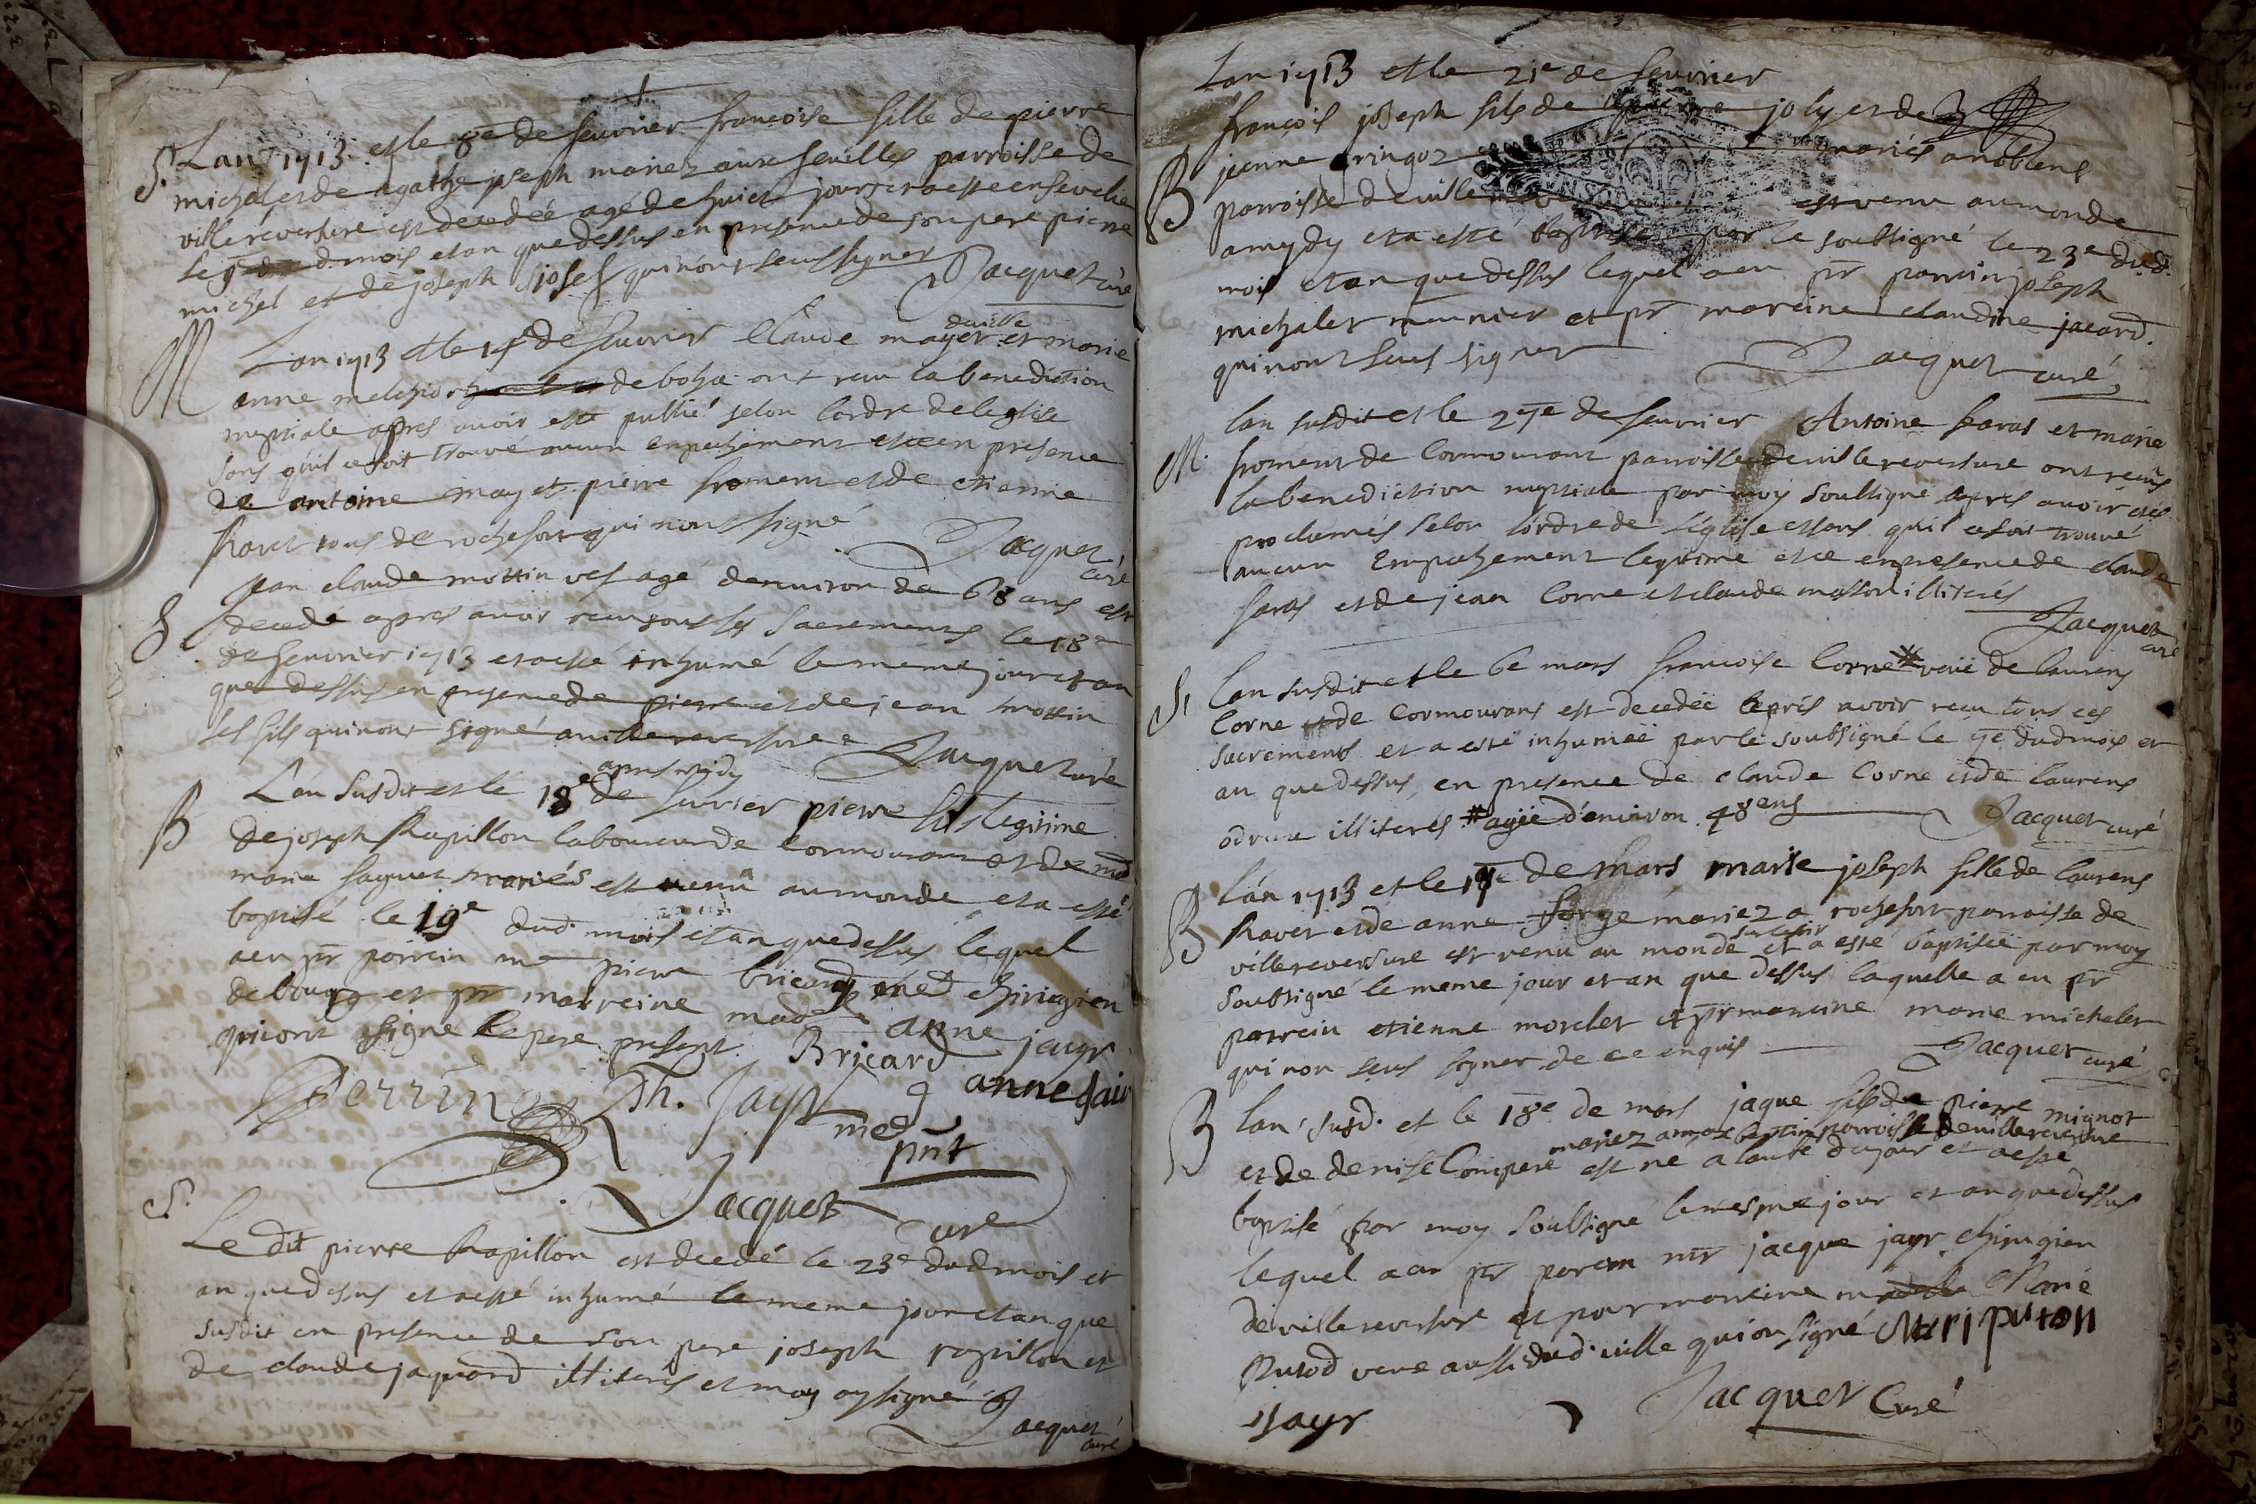 S. Lan 1713 et le 8e de feuvrier francoise fille de pierre
michalet de agathe joseph mariez aux feuilles parroisse de
villereversure est decedée agé de huict jours et a esté ensevelie
le d. mois et an que dessus en presence de son pere pierre
michel et de joseph josef qui n'ont sceus signer Jacquet curé
M Lan 1713 et le 14e de feuvrier Claude mayet et marie
anne melchior de bohas ont receu la benediction
nuptiale apres avoir esté publié selon l'ordre de leglise
sans quil ce soit trouvé aucun enpechement et ce en presence
de antoine mayet pierre froment et de etienne
Ravet tous de rochefort qui n'ont signé Jacquet curé
S Jean claude mottin vef agé denuiron de 68 ans est
decedé apres avoir receu tous les sacrements le 18e
de feuvrier 1713 et a esté inhumé le meme jour et an
que dessus en presence de pierre et de jean mottin
ses fils qui n'ont signé a villereversure Jacquet curé
apres mydy
B L'an susdit et le 18e de feuvrier pierre fils legitime
de joseph Rapillon laboureur de Cormourans et de
marie faguet mariés est venu au monde et a esté
baptisé le 19e dud. mois et an que dessus lequel
a eu pr parrein me pierre bricard chirugien
de bourg et pr marreine mad. anne jayr
qui ont signe le pere present. Bricard
Perrin Th. Jayr anne Jair
pnt
Jacquet curé
S. Le dit pierre Rapillon est decedé le 23e dud mois et
an que dessus et a esté inhumé le meme jour et an que
susdit en presence de son pere joseph rapillon et
de claude jaquard illiterés et moy ay signé
Jacquet curé
Lan 1713 et le 21e de feuvrier
françois joseph fils de joly et de
B jeanne gringoz mariés
parroisse de ville est venu au monde
a mydy et a esté baptisé par le soubsigné le 23e dud.
mois et an que dessus lequel a eu pr parrein joseph
michalet meunier et pr mareine claudine jacard.
qui n'ont sceus signer Jacquet curé
M. Lan susdit et le 27e de feuvrier Antoine faras et marie
froment de Cormourans parroisse de villereversure ont receus
la benediction nuptiale par moy soubsigné apres avoir estés
proclamés selon l'ordre de l'église et sans quil ce soit trouvé
aucun Empechement legitime et ce en presence de claude
faras et de jean Corne et claude masson illiterés
Jacquet curé
S. Lan susdit et le 6e mars francoise Corne # de laurens
Corne de Cormourans est decedée apres avoir receu tous ces
sacrements et a esté inhumée par le soubsigné le 7e dud mois et
an que dessus, en presence de claude Corne et de laurens
illiterés # agée d'environ 48 ans Jacquet curé
B L'an 1713 et le de mars marie joseph fille de laurens
Ravet et de anne forge mariez a rochefort parroisse de
villereversure est venu au monde et a esté baptisée par moy
soubsigné le meme jour et an que dessus laquelle a eu pr
parrein etienne morclet et pr mareine marie michalet
qui non sceus signer de ce enquis Jacquet curé
B Lan susd. et le 18e de mars jaque fils de pierre mignot
mariez parroisse de villereversure
et de denise Compere est né a laube du jour et a esté
baptisé par moy soubsigne le mesme jour et an que dessus
lequel a eu pr parein mr jacque jayr chirugien
de villereversure et pour mareine Marie
Putod veve aussi dud. ville qui on signé Mari puton
Jayr Jacquet Curé